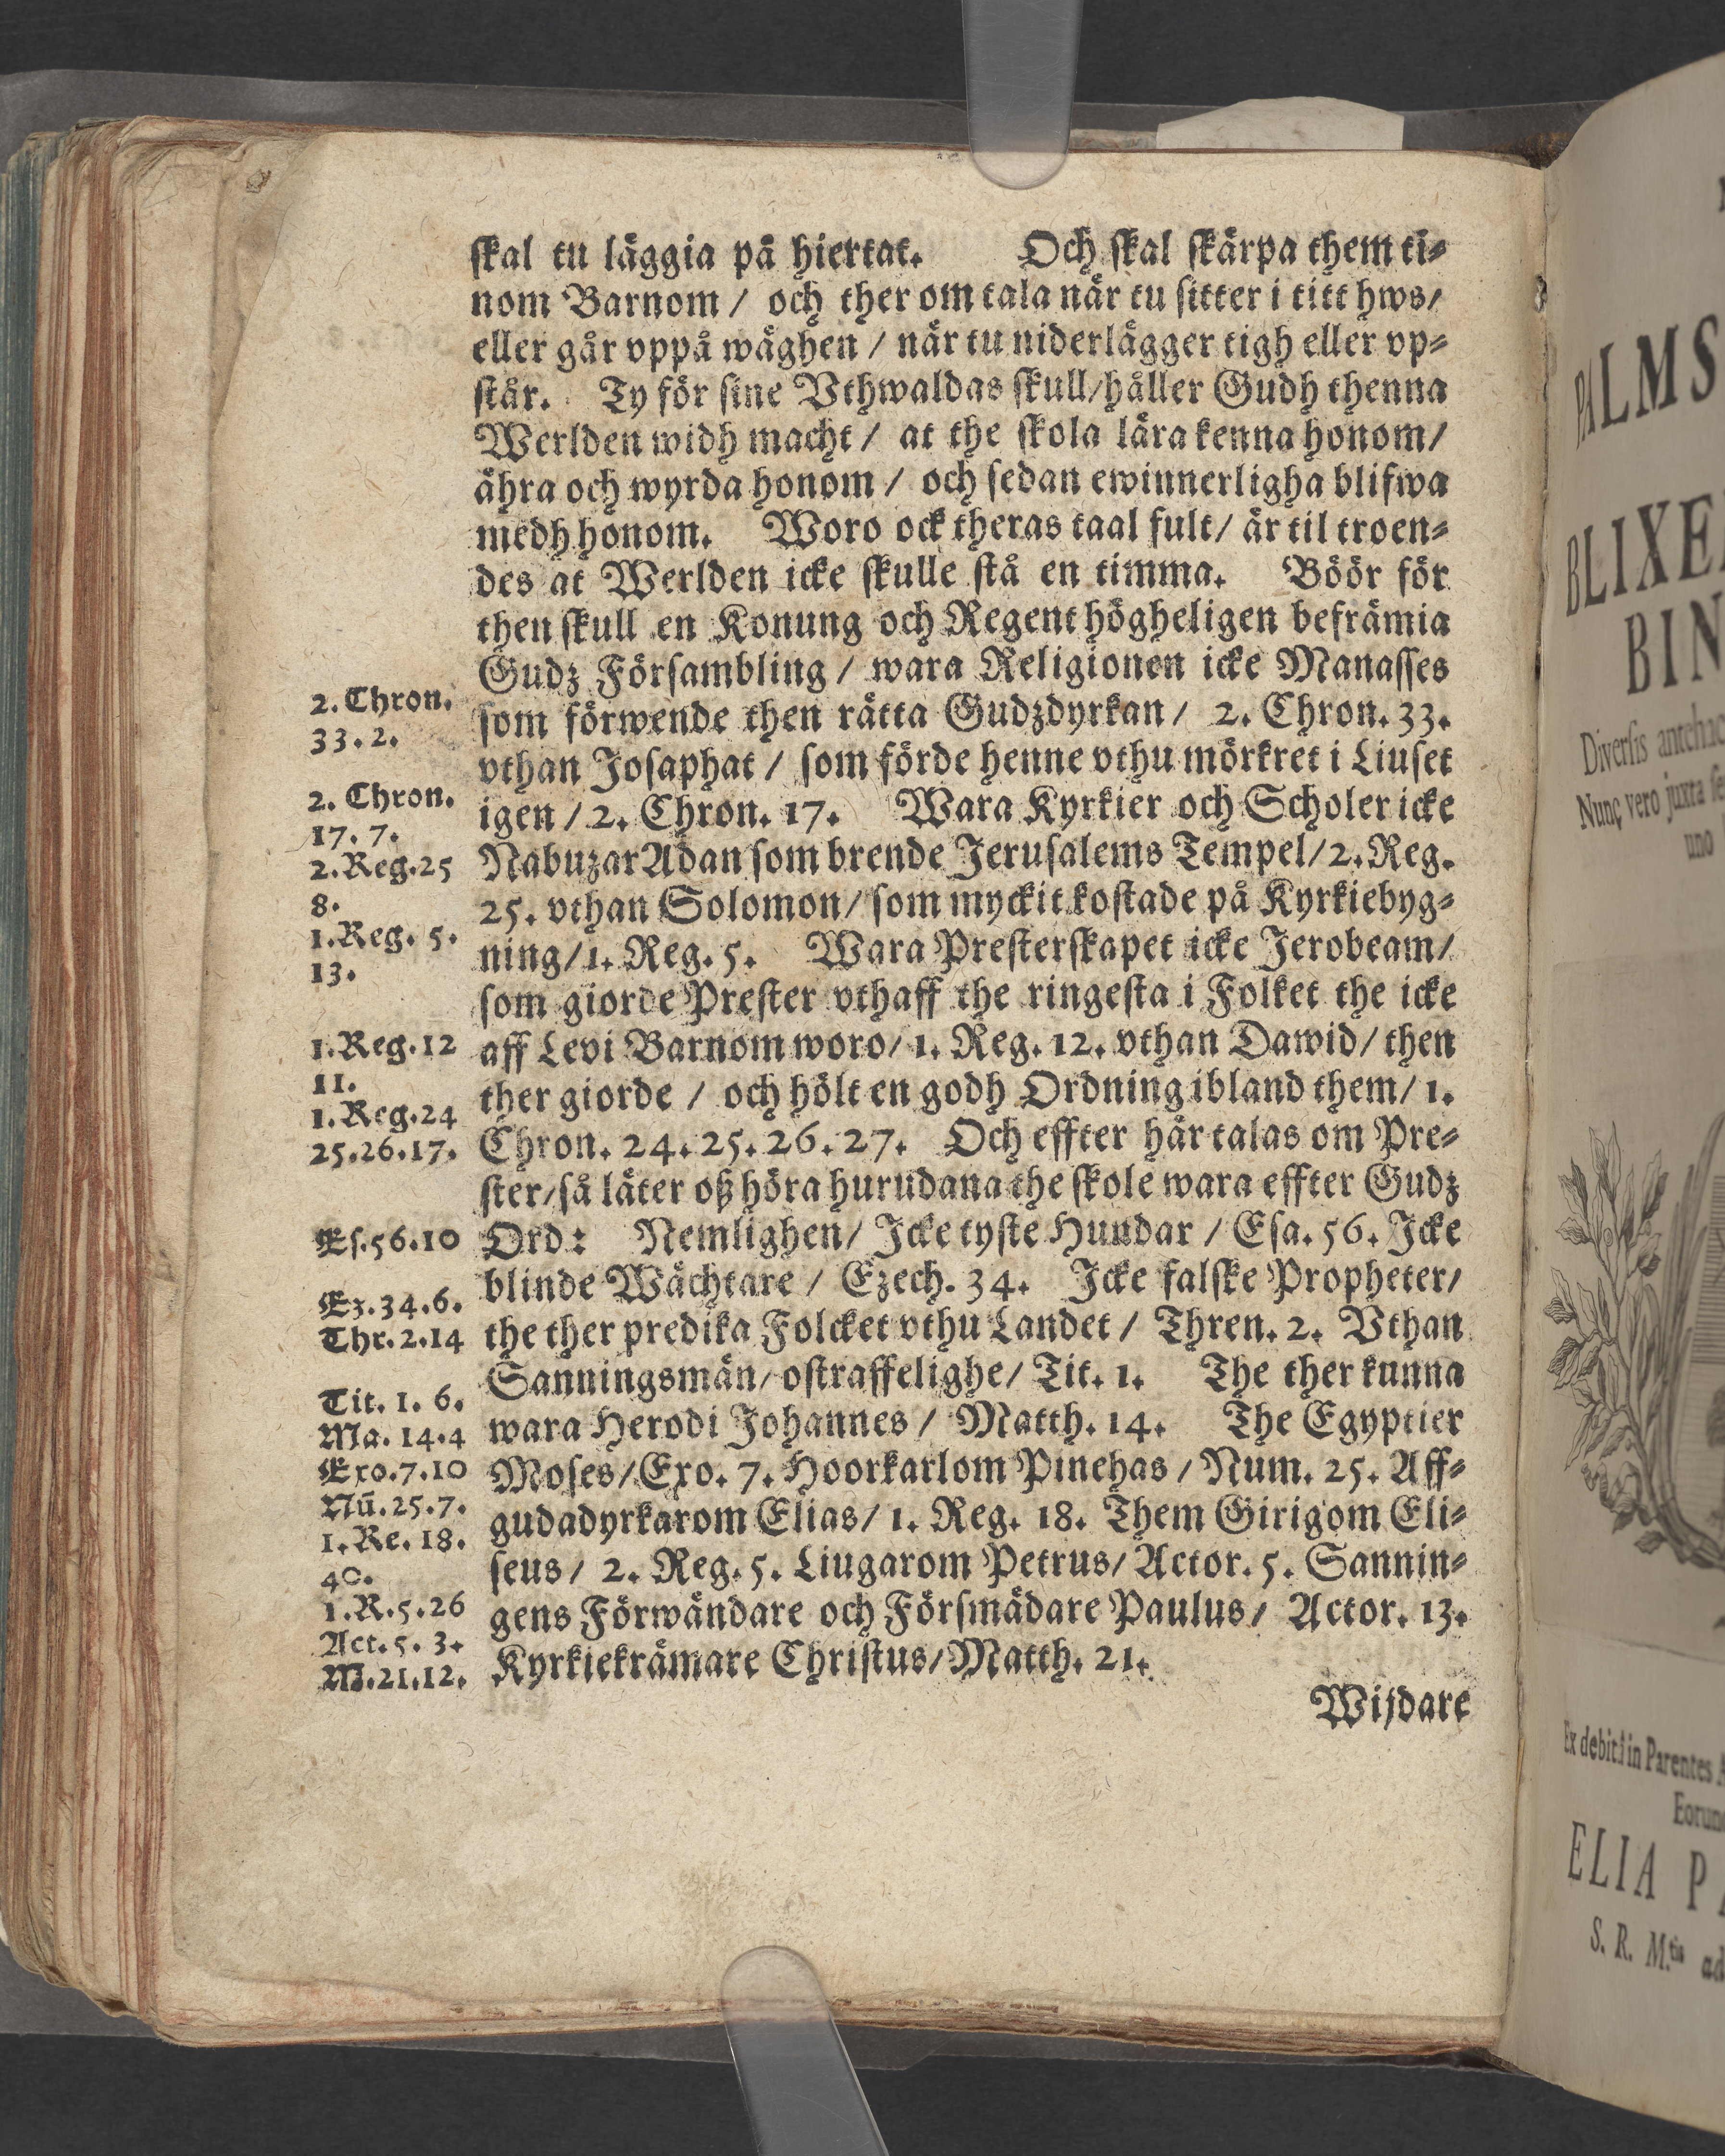 ſkal tu läggia på hiertat. Och ſkal ſkärpa them ti⸗
nom Barnom / och ther om tala när tu ſitter i titt hws/
eller går vppå wäghen / när tu niderlägger tigh eller vp⸗
ſtår. Ty för ſine Vthwaldas ſkull/håller Gudh thenna
Werlden widh macht / at the ſkola lära kenna honom/
ähra och wyrda honom / och ſedan ewinnerligha blifwa
medh honom. Woro ock theras taal fult/ är til troen⸗
des at Werlden icke ſkulle ſtå en timma. Böör för
then ſkull en Konung och Regent högheligen befrämia
Gudz Förſambling / wara Religionen icke Manaſſes
ſom förwende then rätta Gudzdyrkan / 2. Chron. 33.
vthan Joſaphat / ſom förde henne vthu mörkret i Liuſet
igen / 2. Chron. 17. Wara Kyrkier och Scholer icke
NabuzarAdan ſom brende Jeruſalems Tempel/2.Reg.
25. vthan Solomon/ ſom myckit koſtade på Kyrkiebyg⸗
ning/1. Reg. 5. Wara Preſterſkapet icke Jerobeam/
ſom giorde Preſter vthaff the ringeſta i Folket the icke
aff Levi Barnom woro/ 1. Reg. 12. vthan Dawid/ then
ther giorde / och hölt en godh Ordning ibland them/ 1.
Chron. 24. 25. 26. 27. Och effter här talas om Pre⸗
ſter/ſå läter oß höra hurudana the ſkole wara effter Gudz
Ord: Nemlighen/ Icke tyſte Hundar / Eſa. 56. Icke
blinde Wächtare / Ezech. 34. Icke falſke Propheter/
the ther predika Folcket vthu Landet / Thren. 2. Vthan
Sanningsmän/oſtraffelighe/ Tit. 1. The ther kunna
wara Herodi Johannes / Matth. 14. The Egyptier
Moſes/Exo. 7. Hoorkarlom Pinehas / Num. 25. Aff⸗
gudadyrkarom Elias/ 1. Reg. 18. Them Girigom Eli⸗
ſeus/ 2. Reg. 5. Liugarom Petrus/ Actor. 5. Sannin⸗
gens Förwändare och Förſmädare Paulus/ Actor. 13.
Kyrkiekrämare Chriſtus/Matth. 21.
Wijdare
2. Chron.
33. 2.
2. Chron.
17. 7.
2.Reg.25
8.
1.Reg. 5.
13.
1.Reg.12
11.
1.Reg.24
25.26.17.
Eſ.56.10
Ez.34.6.
Thr.2.14
Tit. 1. 6.
Ma. 14.4
Exo.7.10
Nū.25.7.
1.Re. 18.
40.
1.R.5.26
Act.5. 3.
M.21.12.
PALMS
BLIXE
BIN
Diverſis antehac
Nunc vero juxta
uno
Ex debitâ in Parentes
ELIA P
S. R. M.tis ad